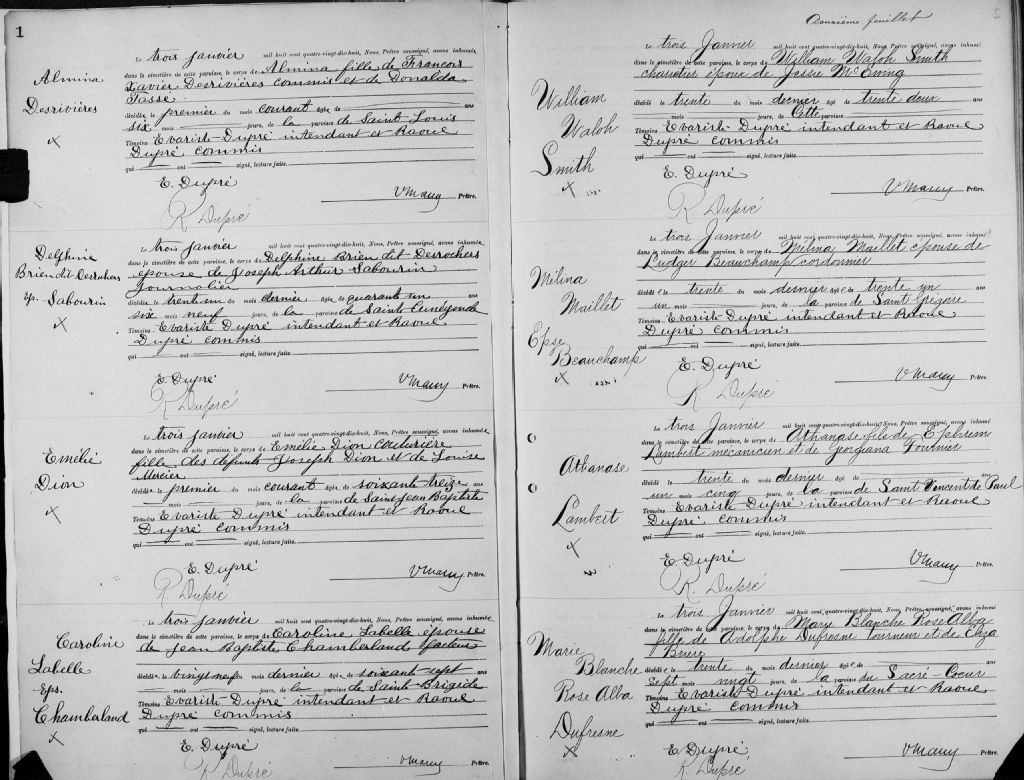 1
Almina
Desrivières
Le trois janvier mil huit cent quatre-vingt-dix-huit, Nous, Prêtre soussigné, avons inhumé
dans le cimetière de cette paroisse, le corps de Almina fille de Francois
Xavier Desrivières commis et de Donalda
Fosse
décédée le premier du mois courant âgée de ans
six mois jours, de la paroisse de Saint Louis
Témoins Evariste Dupré intendant et Raoul
Dupré commis
qui ont signé, lecture faite.
E. Dupré
R Dupré
Prêtre.
Delphine
Brien dit Desrochers
Ep. Sabourin
Le trois janvier mil huit cent quatre-vingt-dix-huit, Nous, Prêtre soussigné, avons inhumé
dans le cimetière de cette paroisse, le corps de Delphine Brien dit Desrochers
épouse de Joseph Arthur Sabourin
journalier
décédée le trente un du mois dernier âgée de quarante un ans
six mois neuf jours, de la paroisse de Sainte Cunégonde
Témoins Evariste Dupré intendant et Raoul
Dupré commis
qui ont signé, lecture faite.
E. Dupré
R Dupré
Prêtre.
Emélié
Dion
Le trois janvier mil huit cent quatre-vingt-dix-huit, Nous, Prêtre soussigné, avons inhumé
dans le cimetière de cette paroisse, le corps de Emélié Dion couturière
fille des defunts Joseph Dion et de Louise
Mercier
décédée le premier du mois courant âgée de soixante treize ans
mois jours, de la paroisse de Saint Jean Baptiste
Témoins Evariste Dupré intendant et Raoul
Dupré commis
qui ont signé, lecture faite.
E. Dupré
R Dupré
Prêtre.
Caroline
Labelle
Eps.
Chamberland
Le trois janvier mil huit cent quatre-vingt-dix-huit, Nous, Prêtre soussigné, avons inhumé
dans le cimetière de cette paroisse, le corps de Caroline Labelle épouse
de Jean Baptiste Chamberland facteur
décédée le vingt neuf du mois dernier âgée de soixante sept ans
mois jours, de la paroisse de Sainte Brigide
Témoins Evariste Dupré intendant et Raoul
Dupré commis
qui ont signé, lecture faite.
E. Dupré
R Dupré
Prêtre.
Deuxième feuillet
William
Walsh
Smith
Le trois Janvier mil huit cent quatre-vingt-dix-huit, Nous, Prêtre soussigné, avons inhumé
dans le cimetière de cette paroisse, le corps de William Walsh Smith
charretier époux de Jossie McEwing
décédé le trente du mois dernier âgé de trente deux ans
mois jours, de Cette paroisse
Témoins Evariste Dupré intendant et Raoul
Dupré commis
qui ont signé, lecture faite.
E. Dupré
R Dupré
Prêtre.
Mélina
Maillet
Epse
Beauchamp
Le trois Janvier mil huit cent quatre-vingt-dix-huit, Nous, Prêtre soussigné, avons inhumé
dans le cimetière de cette paroisse, le corps de Mélina Maillet épouse de
Ludger Beauchamp cordonnier
décédée le trente du mois dernier âgée de trente un ans
un mois jours, de la paroisse de Saint Grégoire
Témoins Evariste Dupré intendant et Raoul
Dupré commis
qui ont signé, lecture faite.
E. Dupré
R Dupré
Prêtre.
Athanase
Lambert
Le trois Janvier mil huit cent quatre-vingt-dix-huit, Nous, Prêtre soussigné, avons inhumé
dans le cimetière de cette paroisse, le corps de Athanase fils de Ephrem
Lambert mécanicien et de Georgiana Fournier
décédé le trente du mois dernier âgé de ans
un mois cinq jours, de la paroisse de Saint Vincent de Paul
Témoins Evariste Dupré intendant et Raoul
Dupré commis
qui ont signé, lecture faite.
E. Dupré
R Dupré
Prêtre.
Marie
Blanche
Rose Alba
Dufresne
Le trois Janvier mil huit cent quatre-vingt-dix-huit, Nous, Prêtre soussigné, avons inhumé
dans le cimetière de cette paroisse, le corps de Marie Blanche Rose Alba
fille de Adolphe Dufresne tourneur et de Eliza
Briere
décédée le trente du mois dernier âgée de ans
sept mois vingt jours, de la paroisse du Sacré-Coeur
Témoins Evariste Dupré intendant et Raoul
Dupré commis
qui ont signé, lecture faite.
E Dupré
R Dupré
Prêtre.